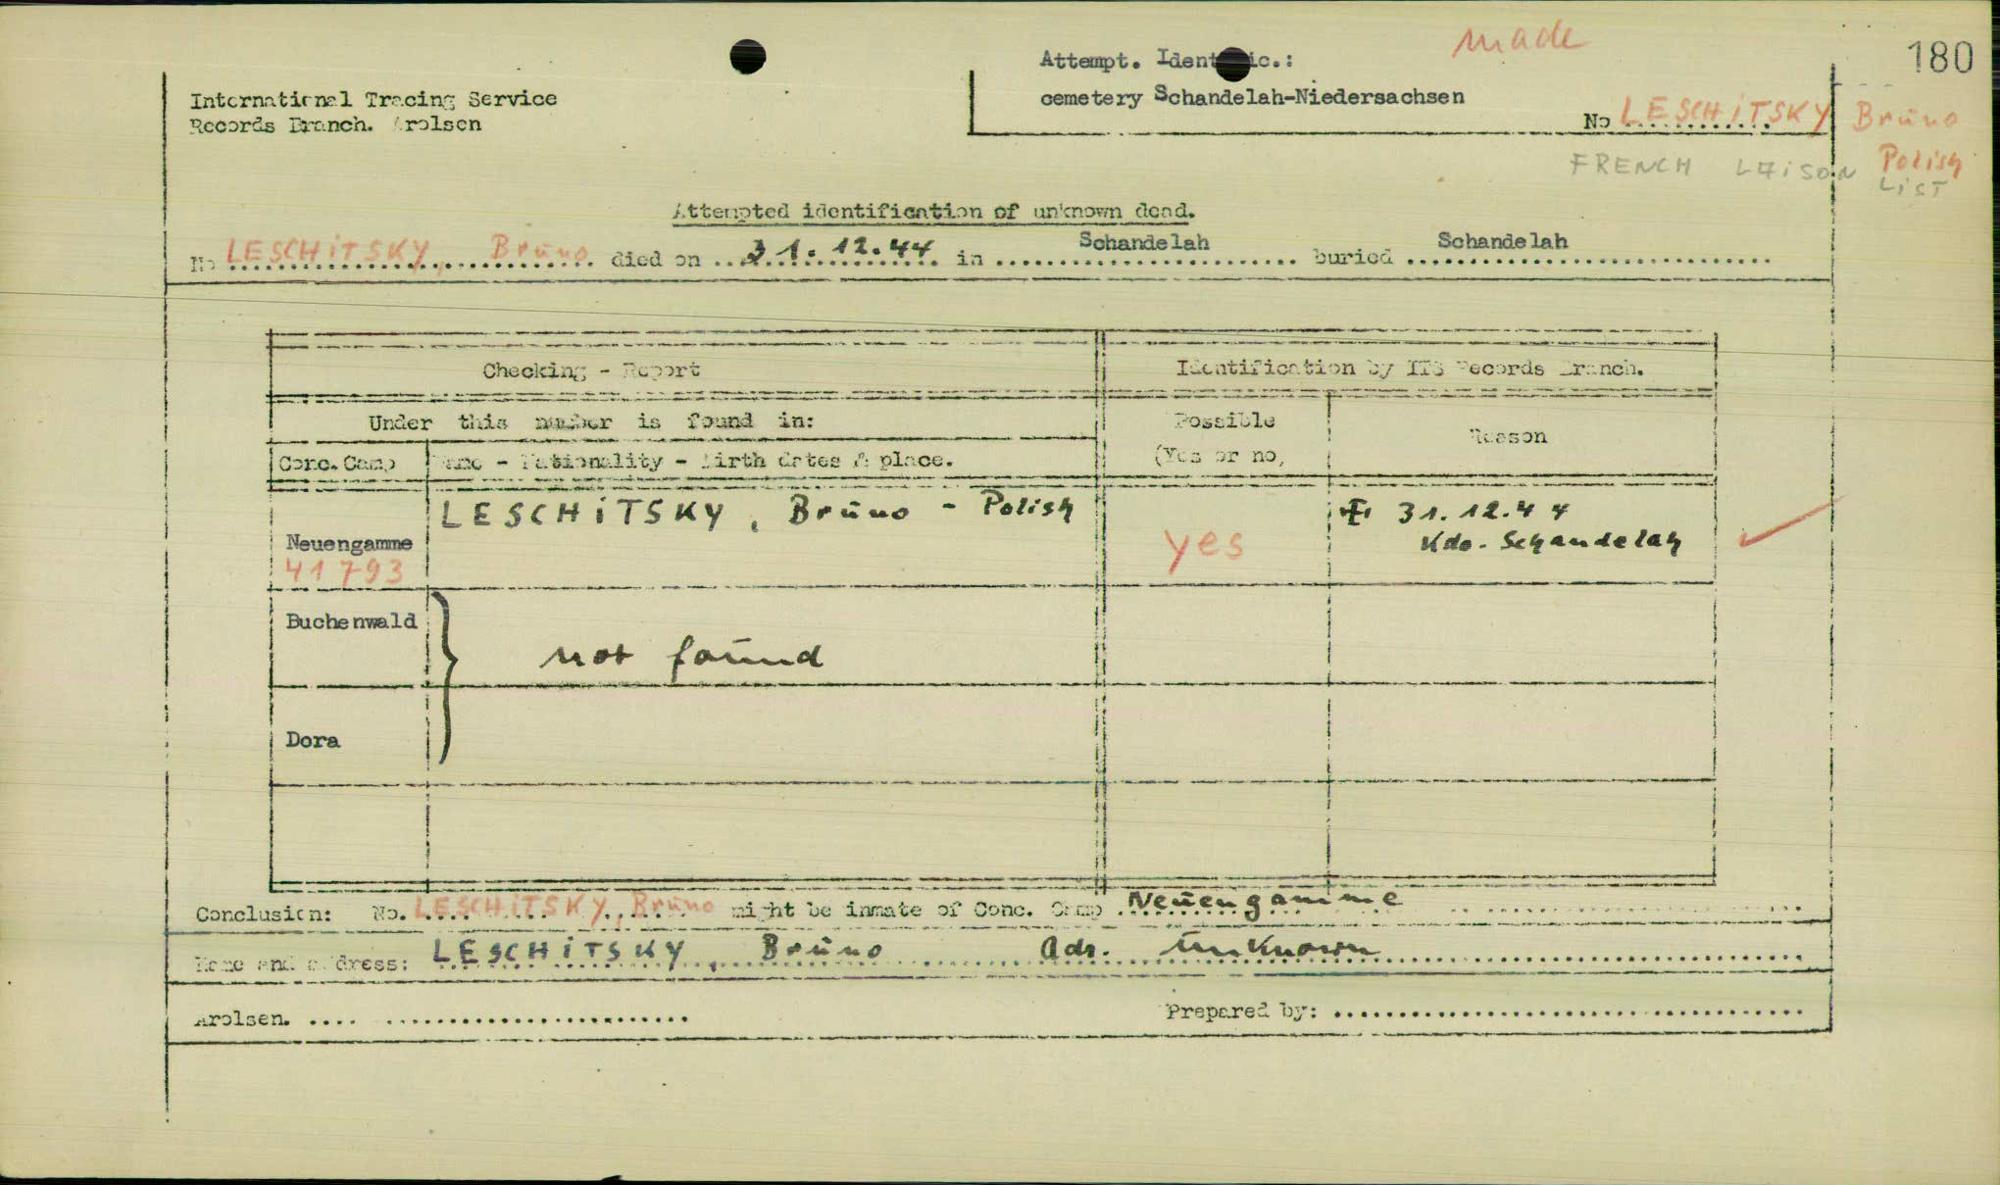 made
180
Attempt. Identific.:
cemetery Schandelah-Niedersachsen
International Tracing Service
Records Branch. Arolsen
No LESCHiTSKY Brūno
FRENCH LAiSON Polish
LiST
Attempted identification of unknown dead.
No LESCHiTSKY, Brūno died on 31.12.44 in Schandelah buried Schandelah
Checking - Report
Identification by ITS Records Branch.
Under this number is found in:
Possible
(Yes or no,
Reason
Conc. Camp
Name - Nationality - Birth dates & place.
Neuengamme
41793
LESCHiTSKY, Brūno - Polish
yes
31.12.44
Kdo. Schandelah
Buchenwald
not foūnd
Dora
Conclusion: No. LESCHiTSKY, Brūno might be inmate of Conc. Camp Neūengamme
Name and address: LESCHiTSKY, Brūno Adr. unknown
Arolsen.
Prepared by: